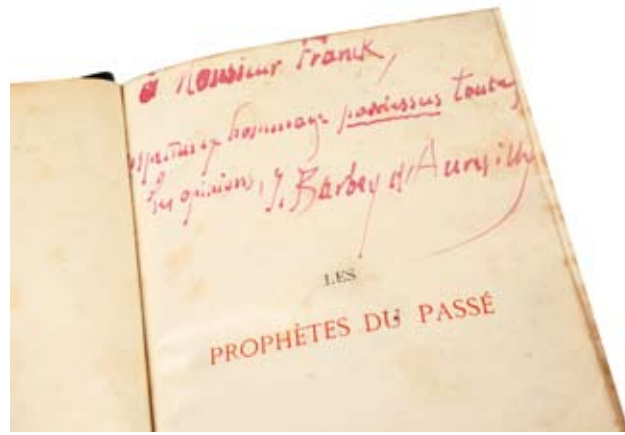 à Monsieur Franck,
respectueux hommage pardessus toutes
les opinions, J. Barbey d'Aurevilly
LES
PROPHÈTES DU PASSÉ